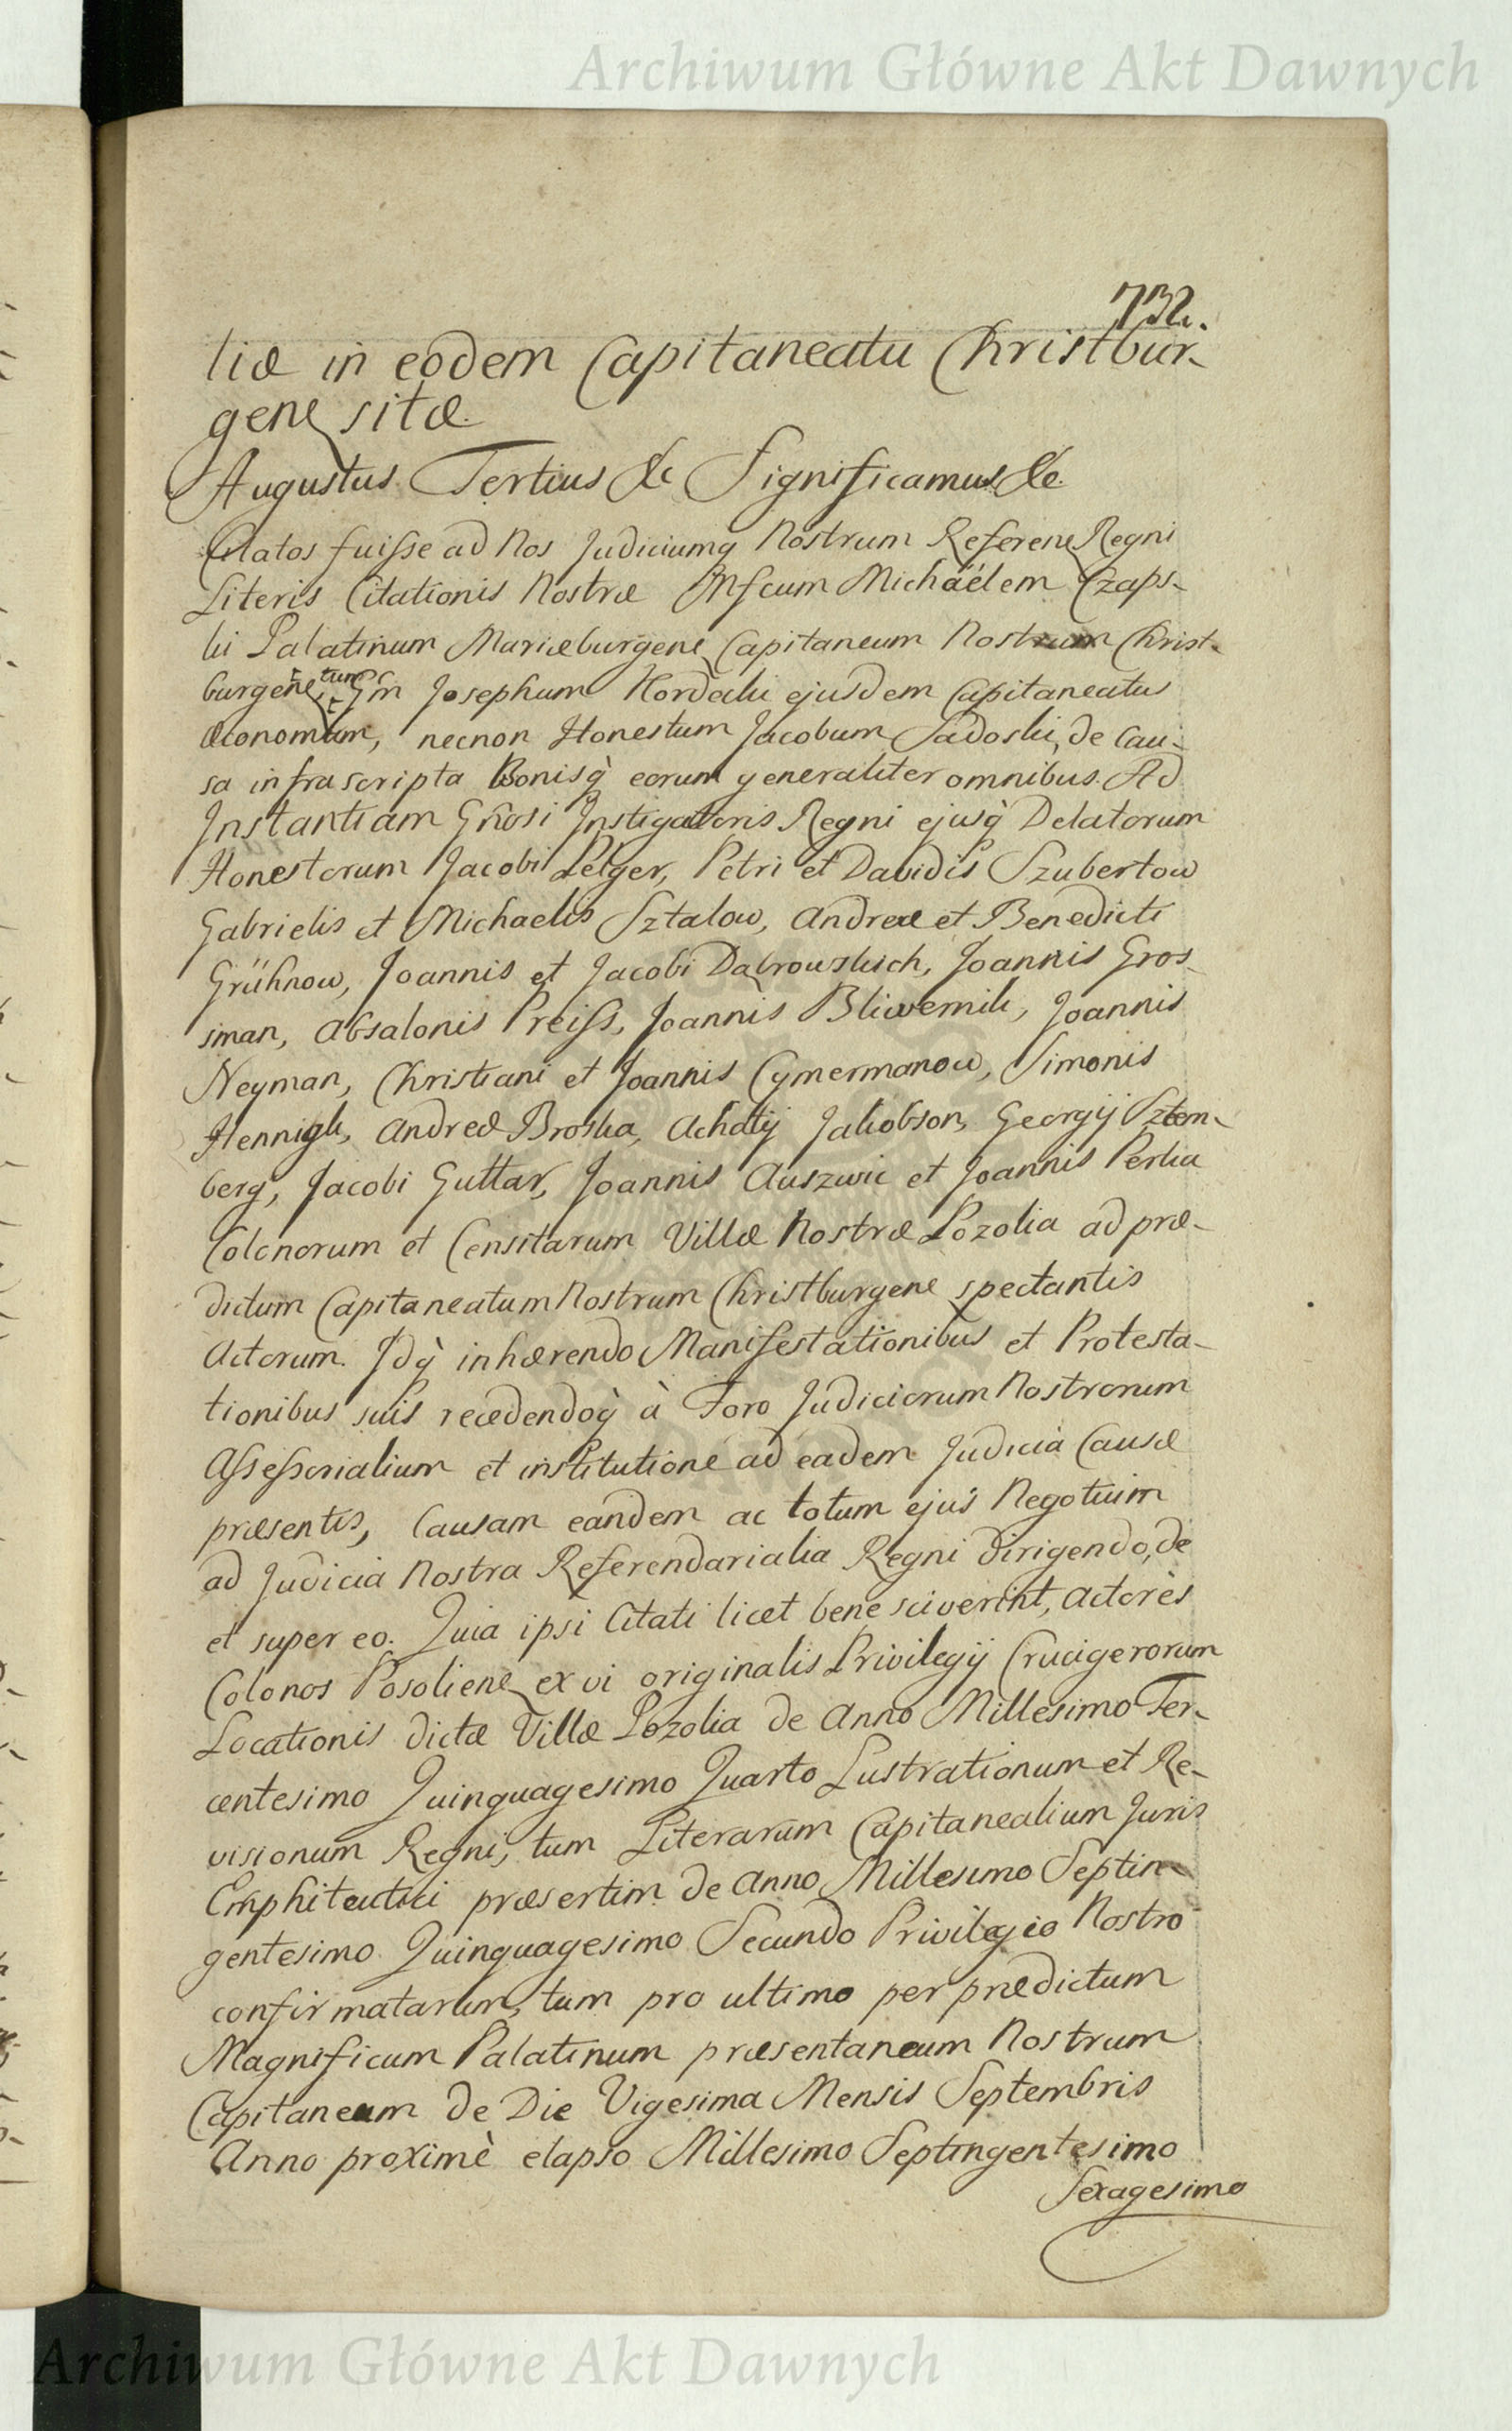 Archiwum Główne Akt Dawnych
732.
liæ in eodem Capitaneatu Christbur-
gene sitæ.
Augustus Tertius &c Significamus &c.
Citatos fuisse ad Nos Judiciumq Nostrum Referene Regni
Literis Citationis Nostræ Mfcum Michäélem Czaps-
ki Palatinum Mariæburgene Capitaneum Nostrum Christ-
burgene, tum Gn Josephum Kordecki ejusdem Capitaneatus
œconomum, necnon Honestum Jacobum Sadoski, de Cau-
sa infrascripta Bonisq̀ eorum generaliter omnibus. Ad
Instantiam Gnosi Instigatoris Regni ejusq̀ Delatorum
Honestorum Jacobi Pelger, Petri et Davidis Szubertow
Gabrielis et Michaelis Sztalow, Andreæ et Benedicti
Grühnow, Joannis et Jacobi Dabrowskich, Joannis Gros-
sman, Absalonis Preiss, Joannis Bliwernik, Joannis
Neyman, Christiani et Joannis Cymermanow, Simonis
Hennigk, Andreæ Broska, Achatij Jakobson, Georgij Sztem-
berg, Jacobi Guttar, Joannis Auszwic et Joannis Perka
Colonorum et Censitarum Villæ Nostræ Pozolia ad præ-
dictum Capitaneatum Nostrum Christburgene spectantis
Actorum. Idq̀ inhærendo Manifestationibus et Protesta-
tionibus suis recedendoq̀ à Foro Judiciorum Nostrorum
Assessorialium et institutione ad eadem Judicia Causæ
præsentis, Causam eandem ac totum ejus Negotium
ad Judicia Nostra Referendarialia Regni dirigendo, de
et super eo. Quia ipsi Citati licet bene sciverint, Actores
Colonos Posoliene ex vi originalis Privilegij Crucigerorum
Locationis dictæ Villæ Pozolia de Anno Millesimo Ter-
centesimo Quinquagesimo Quarto Lustrationum et Re-
visionum Regni, tum Literarum Capitanealium Juris
Emphiteutici præsertim de Anno Millesimo Septin-
gentesimo Quinquagesimo Secundo Privilegio Nostro
confirmatarum, tum pro ultimo per prædictum
Magnificum Palatinum præsentaneum Nostrum
Capitaneum de Die Vigesima Mensis Septembris
Anno proximè elapso Millesimo Septingentesimo
Sexagesimo
Archiwum Główne Akt Dawnych